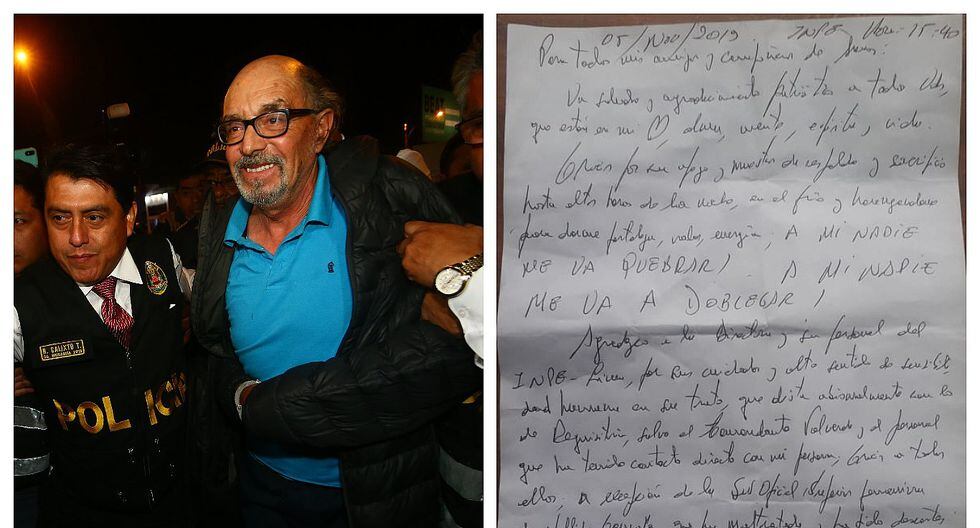 B. CALIXTO T.
POLICIA
05/Nov/2019 INPE Hora: 15:40
Para todos mis amigos y compañeros de
Un saludo y agradecimiento a todos Uds,
que están en mi ♡, alma, mente, espíritu, vida.
Gracias por su apoyo y muestras de respaldo y sacrificio
hasta altas horas de la noche, en el frío y
para darme fortaleza, valor, energía; A MI NADIE
ME VA QUEBRAR! A MI NADIE
ME VA A DOBLEGAR!
Agradezco a la Directora y su personal del
INPE - Lima, por sus cuidados y alto sentido de
humana en su trato, que dista abismalmente con los
de Requisitoria, salvo el Comandante Valverde y el personal
que ha tenido contacto directo con mi persona, Gracias a todos
ellos; a excepción de la Sub Oficial